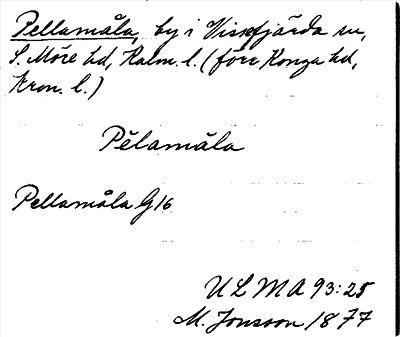 Pellamåla, by i Vissefjärda sn,
S. Möre hd, Kalm. l. (förr Konga hd,
Kron. l.)
Pëlamåla
Pellamåla G16
ULMA 93:25
M. Jonsson 1877